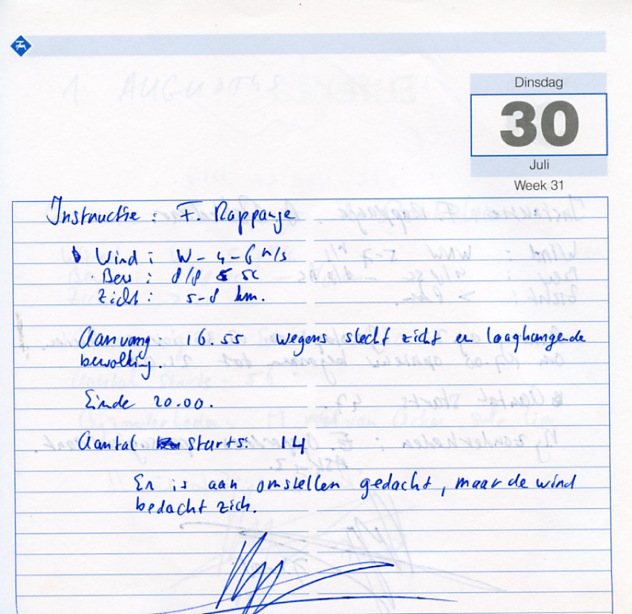 Dinsdag
30
Juli
Week 31
Instructie: F. Rappange
Wind: W - 4-6 m/s
Bew: 8/8 sc
Zicht: 5-8 km.
Aanvang: 16.55 wegens slecht zicht en laaghangende
bewolking.
Einde 20.00.
Aantal starts: 14
Er is aan omstellen gedacht, maar de wind
bedacht zich.